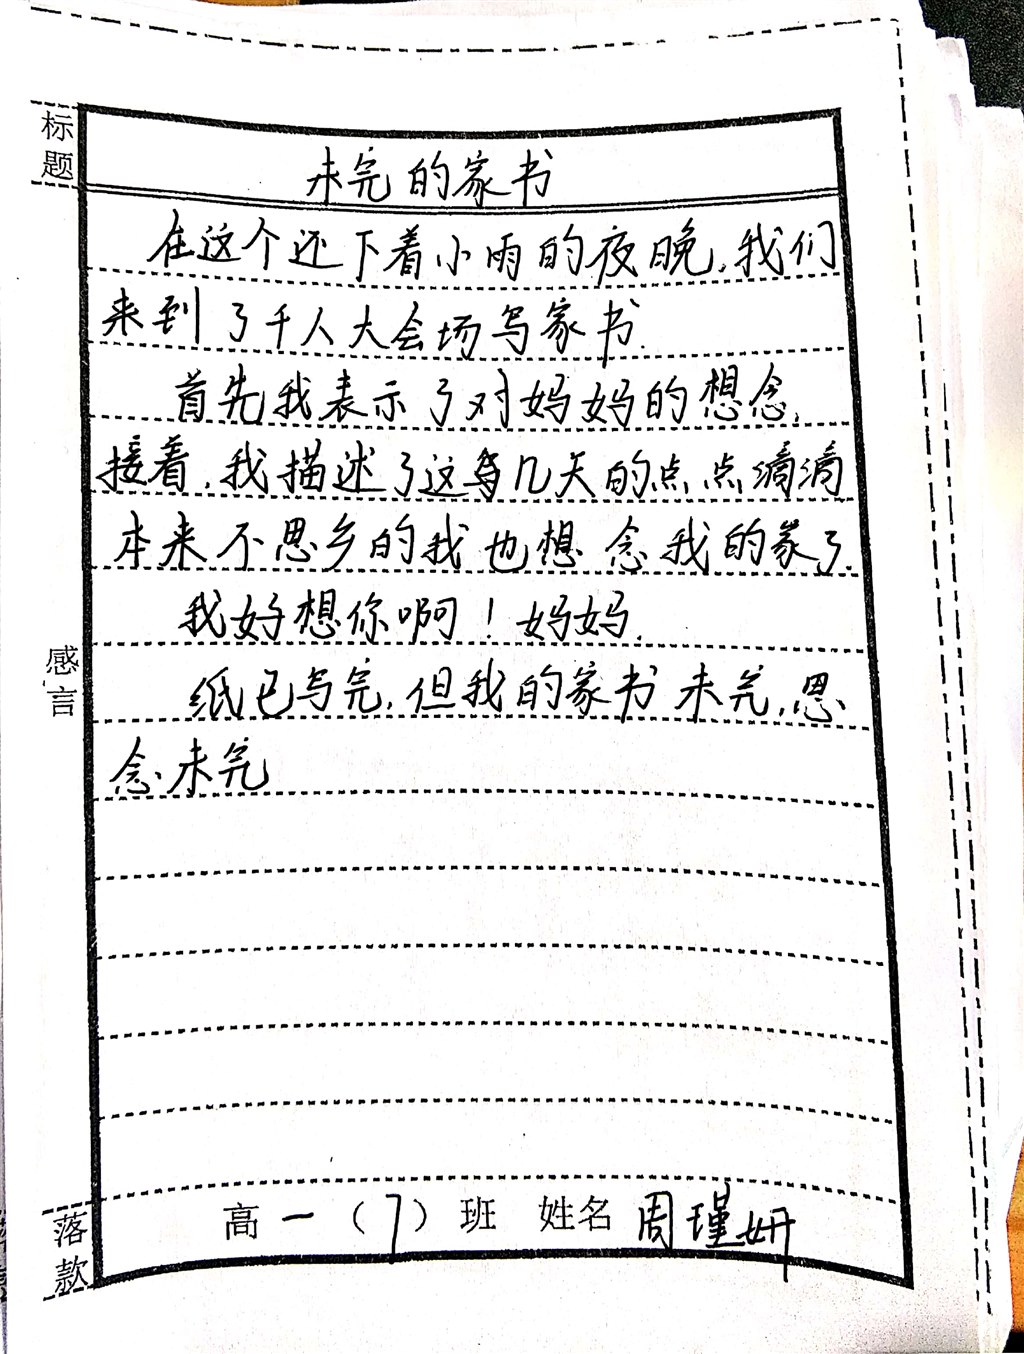 标题
未完的家书
在这个还下着小雨的夜晚,我们
来到了千人大会场写家书.
首先我表示了对妈妈的想念,
接着,我描述了这几天的点点滴滴
本来不思乡的我也想念我的家了.
我好想你啊!妈妈.
纸已写完,但我的家书未完,思
念未完
感言
落款
高一(7)班 姓名 周瑾妍